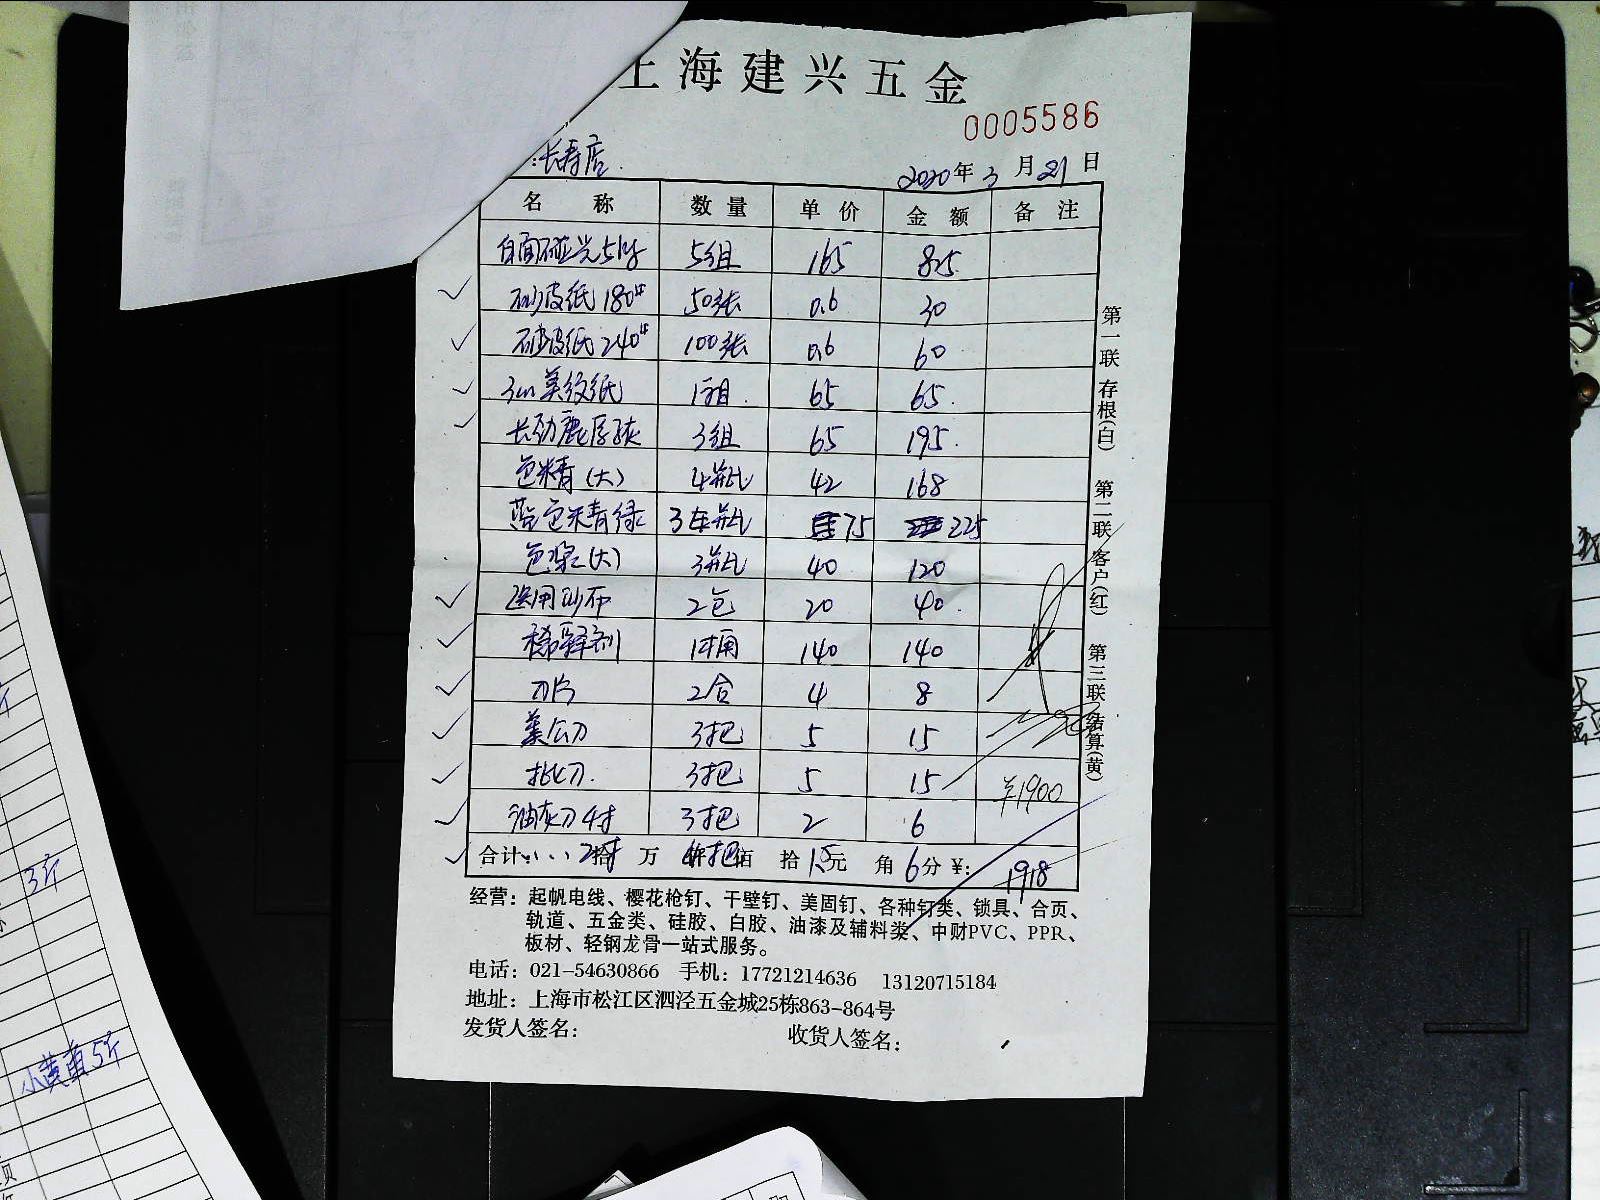 上海建兴五金
0005586
:长寿店.
2020年3月21日
名 称 数量 单价 金额 备注
5组 165 825
砂皮纸180# 50张 0.6 30
砂皮纸240# 100张 0.6 60
3cm美纹纸 1箱. 65 65.
长劲鹿厚灰 3组 65 195.
色精(大) 4瓶 42 168
蓝色精绿 3瓶 75 225
色浆(大) 3瓶 40 120
2包 20 40.
稀释剂 1桶 140 140
刀片 2合 4 8
美工刀 3把 5 15
批刀. 3把 5 15
¥1900
油灰刀4寸 3把 2 6
合计: 2寸拾万 4把佰 拾1.5元 角6分¥: 1918
第一联 存根(白) 第二联 客户(红) 第三联 结算(黄)
经营: 起帆电线、樱花枪钉、干壁钉、美固钉、各种钉类、锁具、合页、
轨道、五金类、硅胶、白胶、油漆及辅料类、中财PVC、PPR、
板材、轻钢龙骨一站式服务。
电话: 021-54630866 手机: 17721214636 13120715184
地址: 上海市松江区泗泾五金城25栋863-864号
发货人签名: 收货人签名:
3斤
小黄鱼5斤